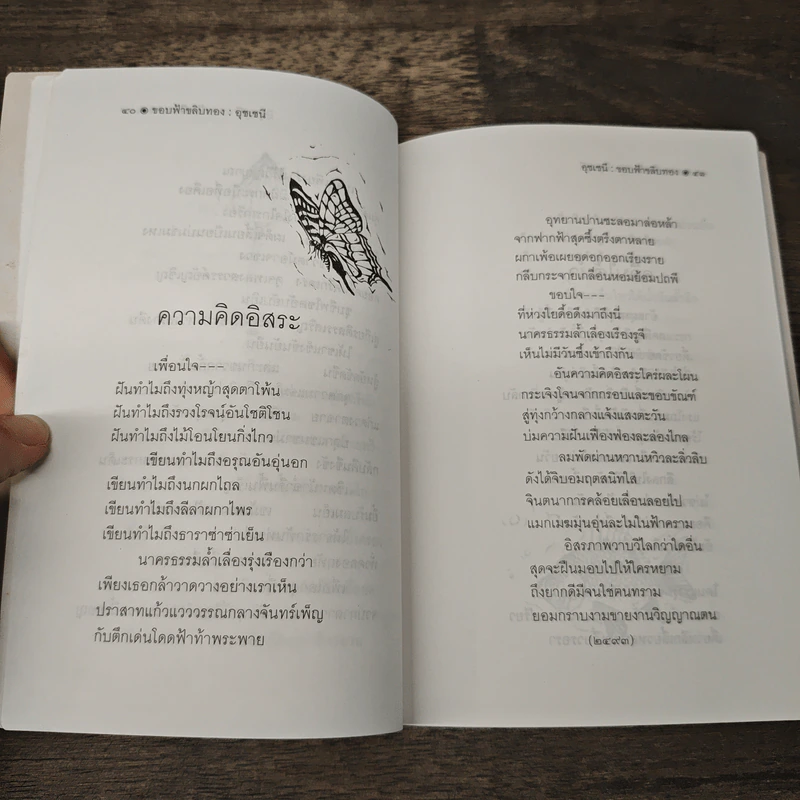 ๔๐ ๏ ขอบฟ้าขลิบทอง : อุชเชนี
ความคิดอิสระ
เพื่อนใจ---
ฝันทำไมถึงทุ่งหญ้าสุดตาโพ้น
ฝันทำไมถึงรวงโรจน์อันโชติโชน
ฝันทำไมถึงไม้โอนโยนกิ่งไกว
เขียนทำไมถึงอรุณอันอุ่นอก
เขียนทำไมถึงนกผกไถล
เขียนทำไมถึงลีลาผกาไพร
เขียนทำไมถึงธาราซ่าซ่าเย็น
นาครธรรมล้ำเลื่องรุ่งเรืองกว่า
เพียงเธอกล้าวาดวางอย่างเราเห็น
ปราสาทแก้วแวววรรณกลางจันทร์เพ็ญ
กับตึกเด่นโดดฟ้าท้าพระพาย
อุชเชนี : ขอบฟ้าขลิบทอง ๏ ๔๑
อุทยานปานชะลอมาล่อหล้า
จากฟากฟ้าสุดซึ้งตรึงตาหลาย
ผกาเพ้อเผยอดอกออกเรียงราย
กลีบกระจายเกลื่อนหอมย้อมปถพี
ขอบใจ---
ที่ห่วงใยดื้อดึงมาถึงนี่
นาครธรรมล้ำเลื่องเรืองรูจี
เห็นไม่มีวันซึ้งเข้าถึงกัน
อันความคิดอิสระใคร่ผละโผน
กระเจิงโจนจากกรอบและขอบขัณฑ์
สู่ทุ่งกว้างกลางแจ้งแสงตะวัน
บ่มความฝันเฟื่องฟ่องละล่องไกล
ลมพัดผ่านหวานหวิวละลิ่วลิบ
ดังได้จิบอมฤตสนิทใส
จินตนาการคล้อยเลื่อนลอยไป
แมกเมฆมุ่นอุ่นละไมในฟ้าคราม
อิสรภาพวาบวิไลกว่าใดอื่น
สุดจะฝืนมอบไปให้ใครหยาม
ถึงยากดีมีจนใช่คนทราม
ยอมกราบงามขายงานวิญญาณตน
(๒๔๙๓)